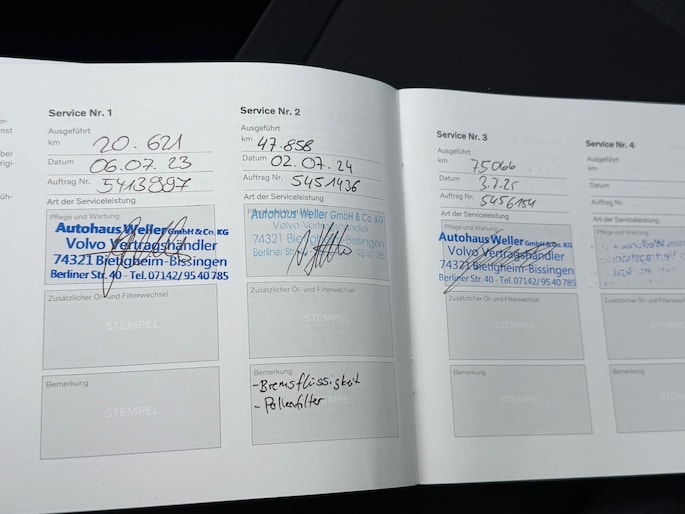 Service Nr. 1
Ausgeführt
km 20.621
Datum 06.07.23
Auftrag Nr. 5413897
Art der Serviceleistung
Pflege und Wartung
Autohaus Weller GmbH & Co. KG
Volvo Vertragshändler
74321 Bietigheim-Bissingen
Berliner Str. 40 - Tel. 07142/95 40 785
Zusätzlicher Öl- und Filterwechsel
STEMPEL
Bemerkung
STEMPEL
Service Nr. 2
Ausgeführt
km 47.858
Datum 02.07.24
Auftrag Nr. 5451436
Art der Serviceleistung
Pflege und Wartung
Autohaus Weller GmbH & Co. KG
Volvo Vertragshändler
74321 Bietigheim-Bissingen
Berliner Str. 40 - Tel. 07142/95 40 785
Zusätzlicher Öl- und Filterwechsel
STEMPEL
Bemerkung
-Bremsflüssigkeit
-Pollenfilter
Service Nr. 3
Ausgeführt
km 75066
Datum 3.7.25
Auftrag Nr. 5456154
Art der Serviceleistung
Pflege und Wartung
Autohaus Weller GmbH & Co. KG
Volvo Vertragshändler
74321 Bietigheim-Bissingen
Berliner Str. 40 - Tel. 07142/95 40 785
Zusätzlicher Öl- und Filterwechsel
STEMPEL
Bemerkung
STEMPEL
Service Nr. 4
Ausgeführt
km
Datum
Auftrag Nr.
Art der Serviceleistung
Pflege und Wartung
Zusätzlicher Öl- und Filterwechsel
Bemerkung